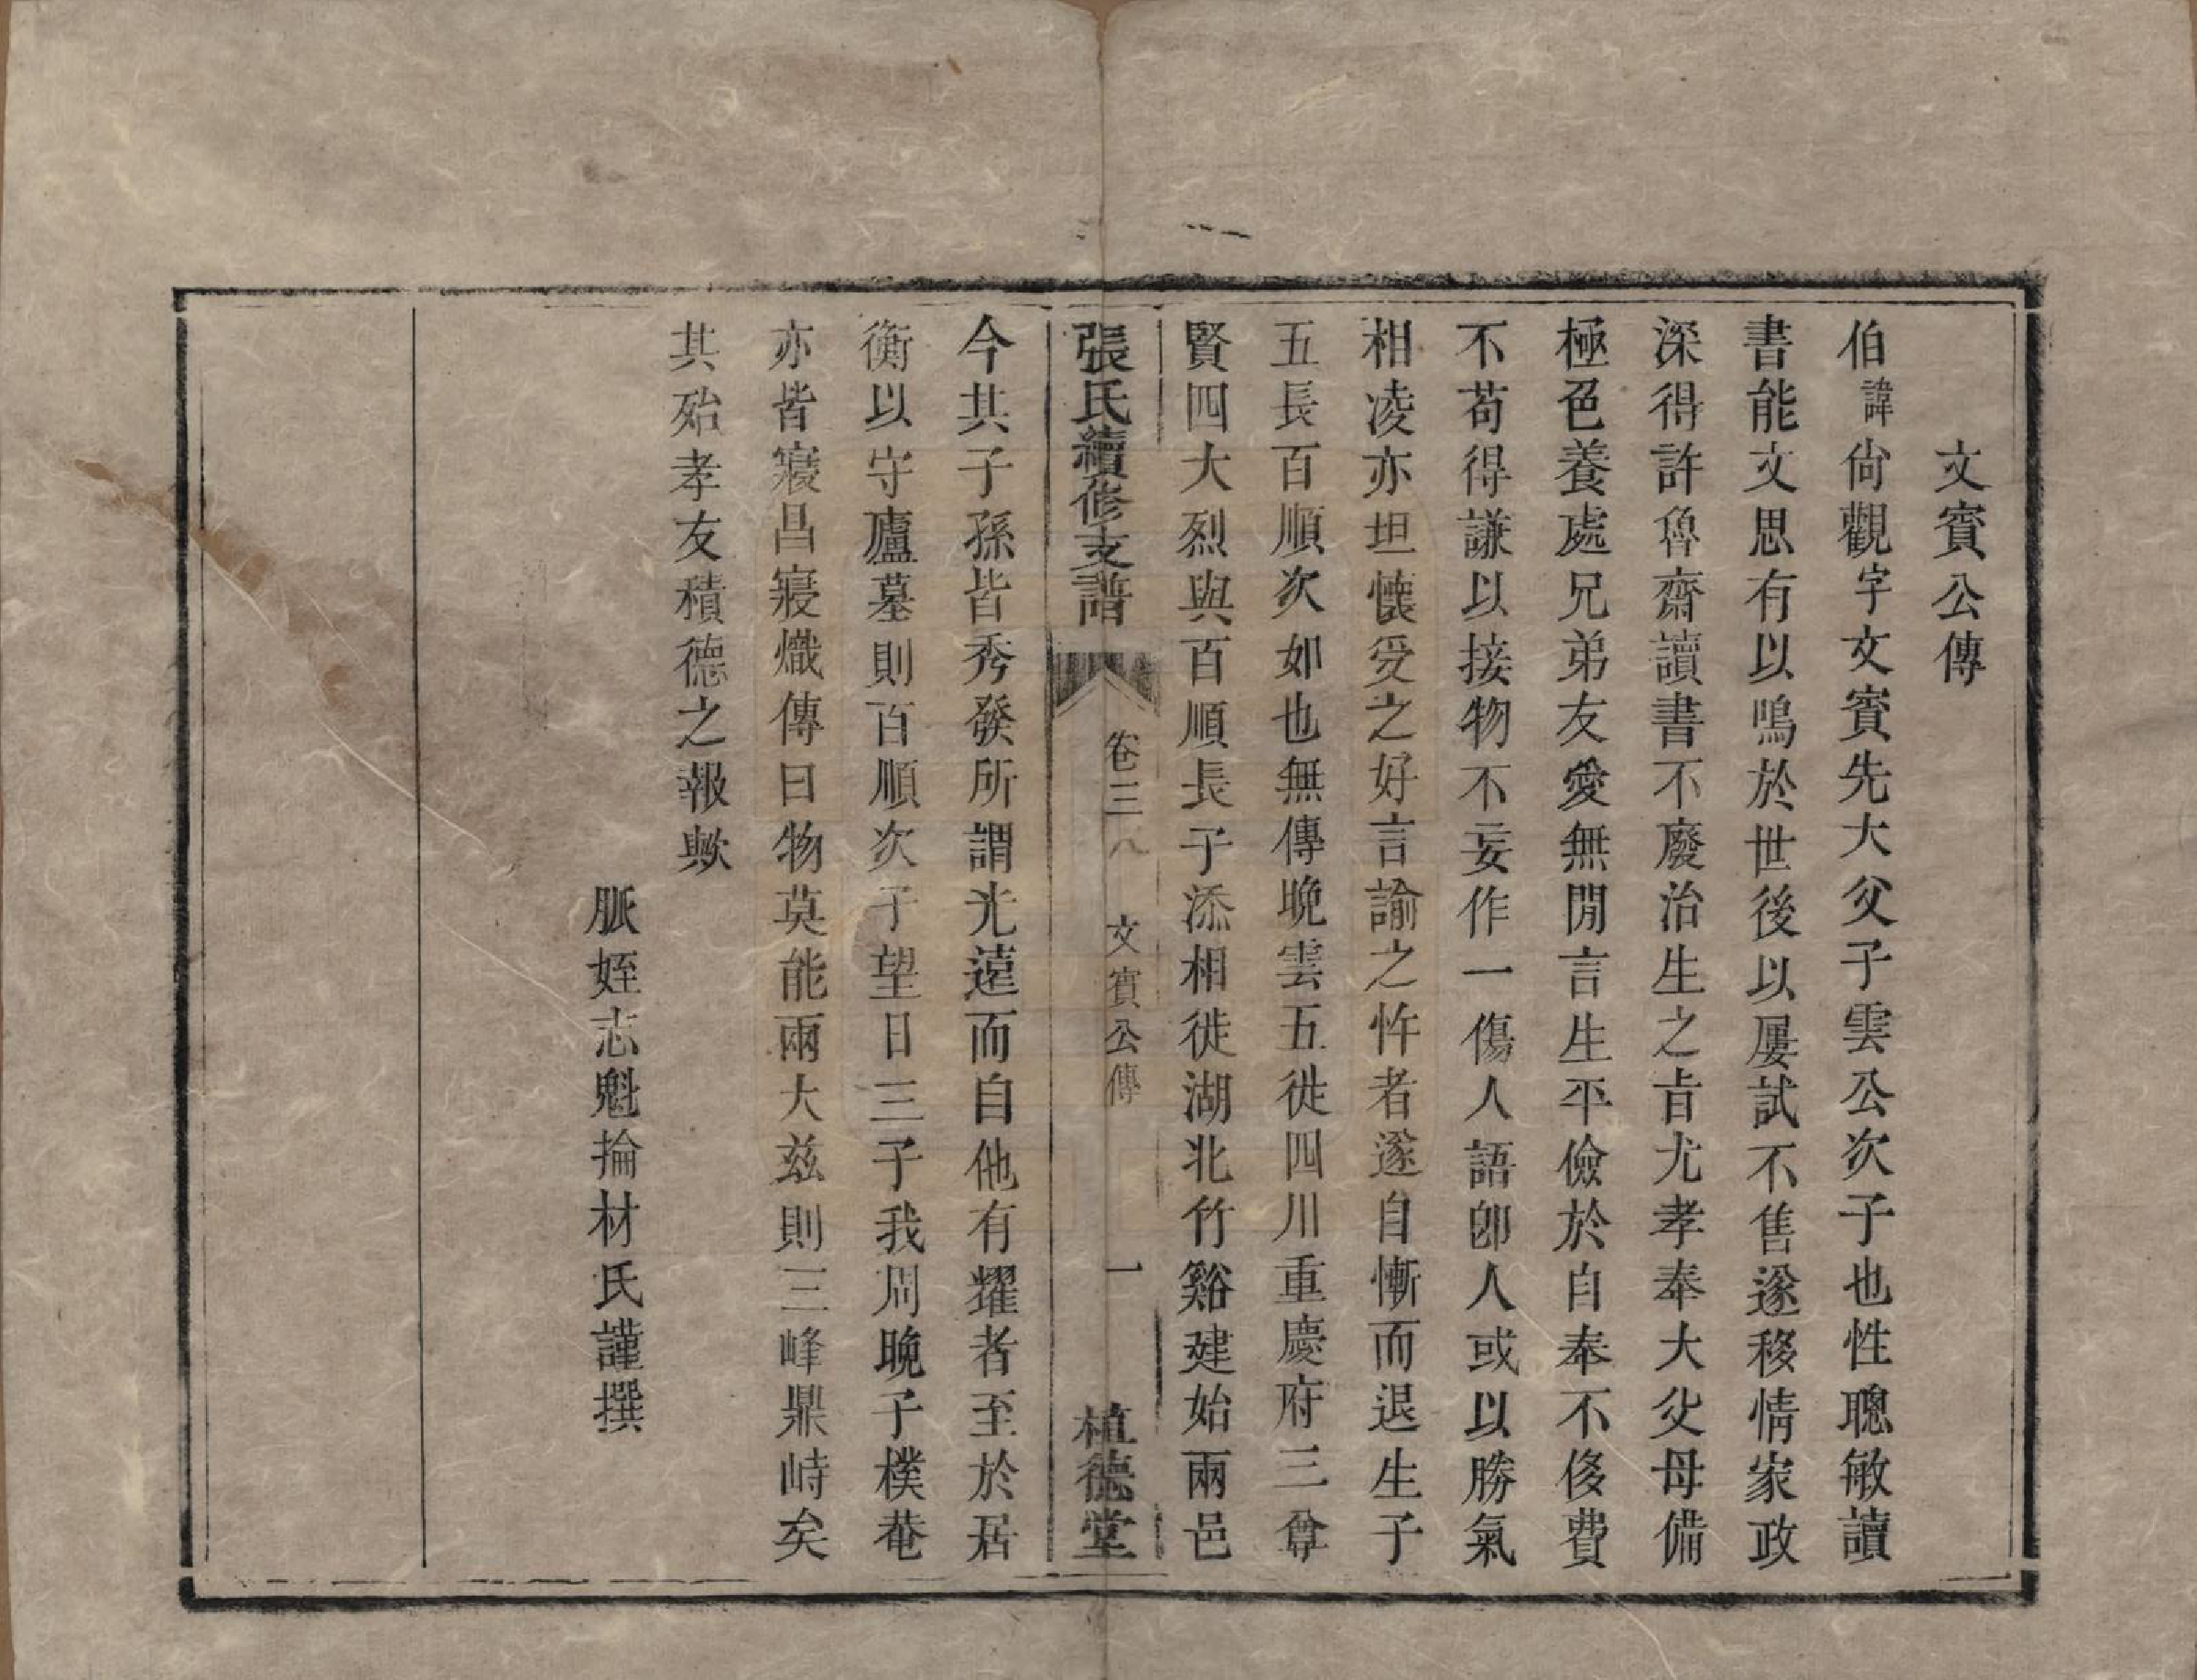 文賓公傳
伯諱尙觀字文賓先大父子雲公次子也性聰敏讀
書能文思有以鳴於世後以屢試不售遂移情家政
深得許魯齋讀書不廢治生之㫖尤孝奉大父母備
極色養處兄弟友愛無閒言生平儉於自奉不侈費
不苟得謙以接物不妄作一傷人語卽人或以勝氣
相凌亦坦懷受之好言諭之忤者遂自慚而退生子
五長百順次如也無傳晚雲五徙四川重慶府三尊
賢四大烈與百順長子添相徙湖北竹谿建始兩邑
張氏續修支譜
卷三八
文賓公傳
一
植德堂
今其子孫皆秀發所謂光遠而自他有耀者至於居
衡以守廬墓則百順次子望日三子我周晚子樸菴
亦皆寖昌寖熾傳曰物莫能兩大兹則三峰鼎峙矣
其殆孝友積德之報歟
脈姪志魁掄材氏謹撰